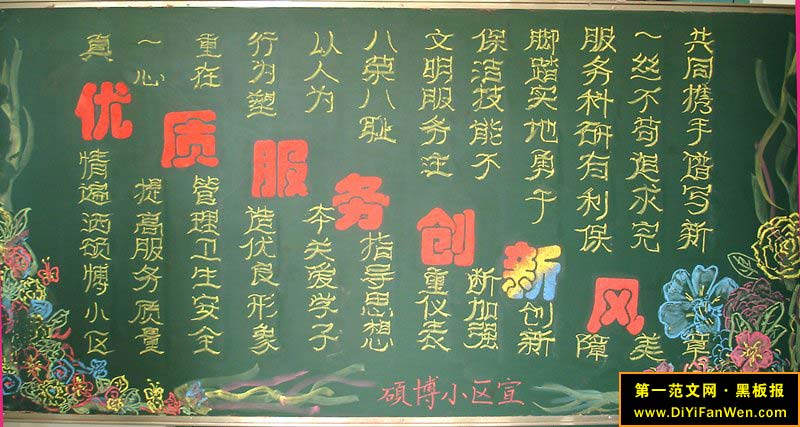 优质服务创新风
真情遍洒硕博小区
一心提高服务质量
重在管理卫生安全
行为塑造优良形象
以人为本关爱学子
八荣八耻指导思想
文明服务注重仪表
保洁技能不断加强
脚踏实地勇于创新
服务科研有利保障
一丝不苟追求完美
共同携手谱写新章
碩博小区宣
第一范文网·黑板报
www.DiYiFanWen.com